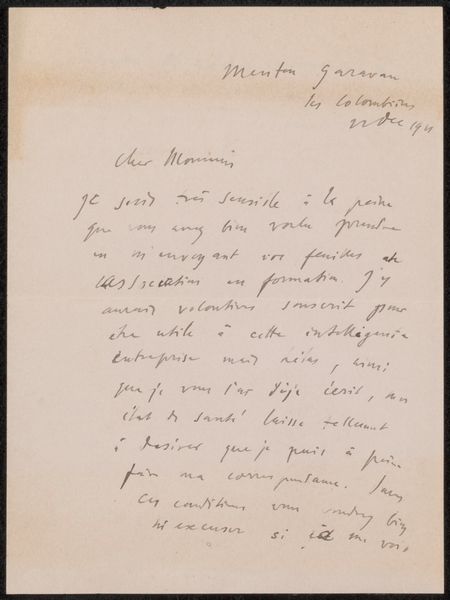 Menton Garavan
les Colombières
22 Dec 1921
Cher Monsieur
Je suis très sensible à la peine
que vous avez bien voulu prendre
en m'envoyant vos feuilles de
l'association en formation. J'y
aurais volontiers souscrit pour
être utile à cette intelligente
entreprise mais hélas, ainsi
que je vous l'ai déjà écrit, mon
état de santé laisse tellement
à désirer que je puis à peine
faire ma correspondance. Dans
ces conditions vous voudrez bien
m'excuser si je me vois